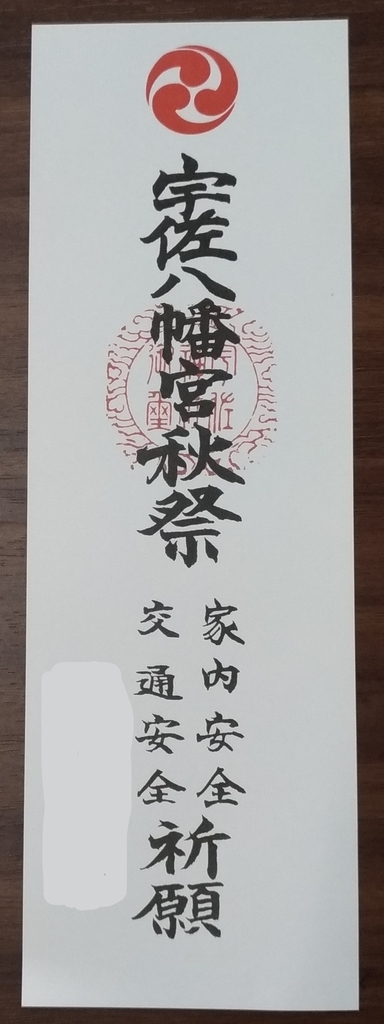 宇佐八幡宮秋祭
家内安全
交通安全
祈願